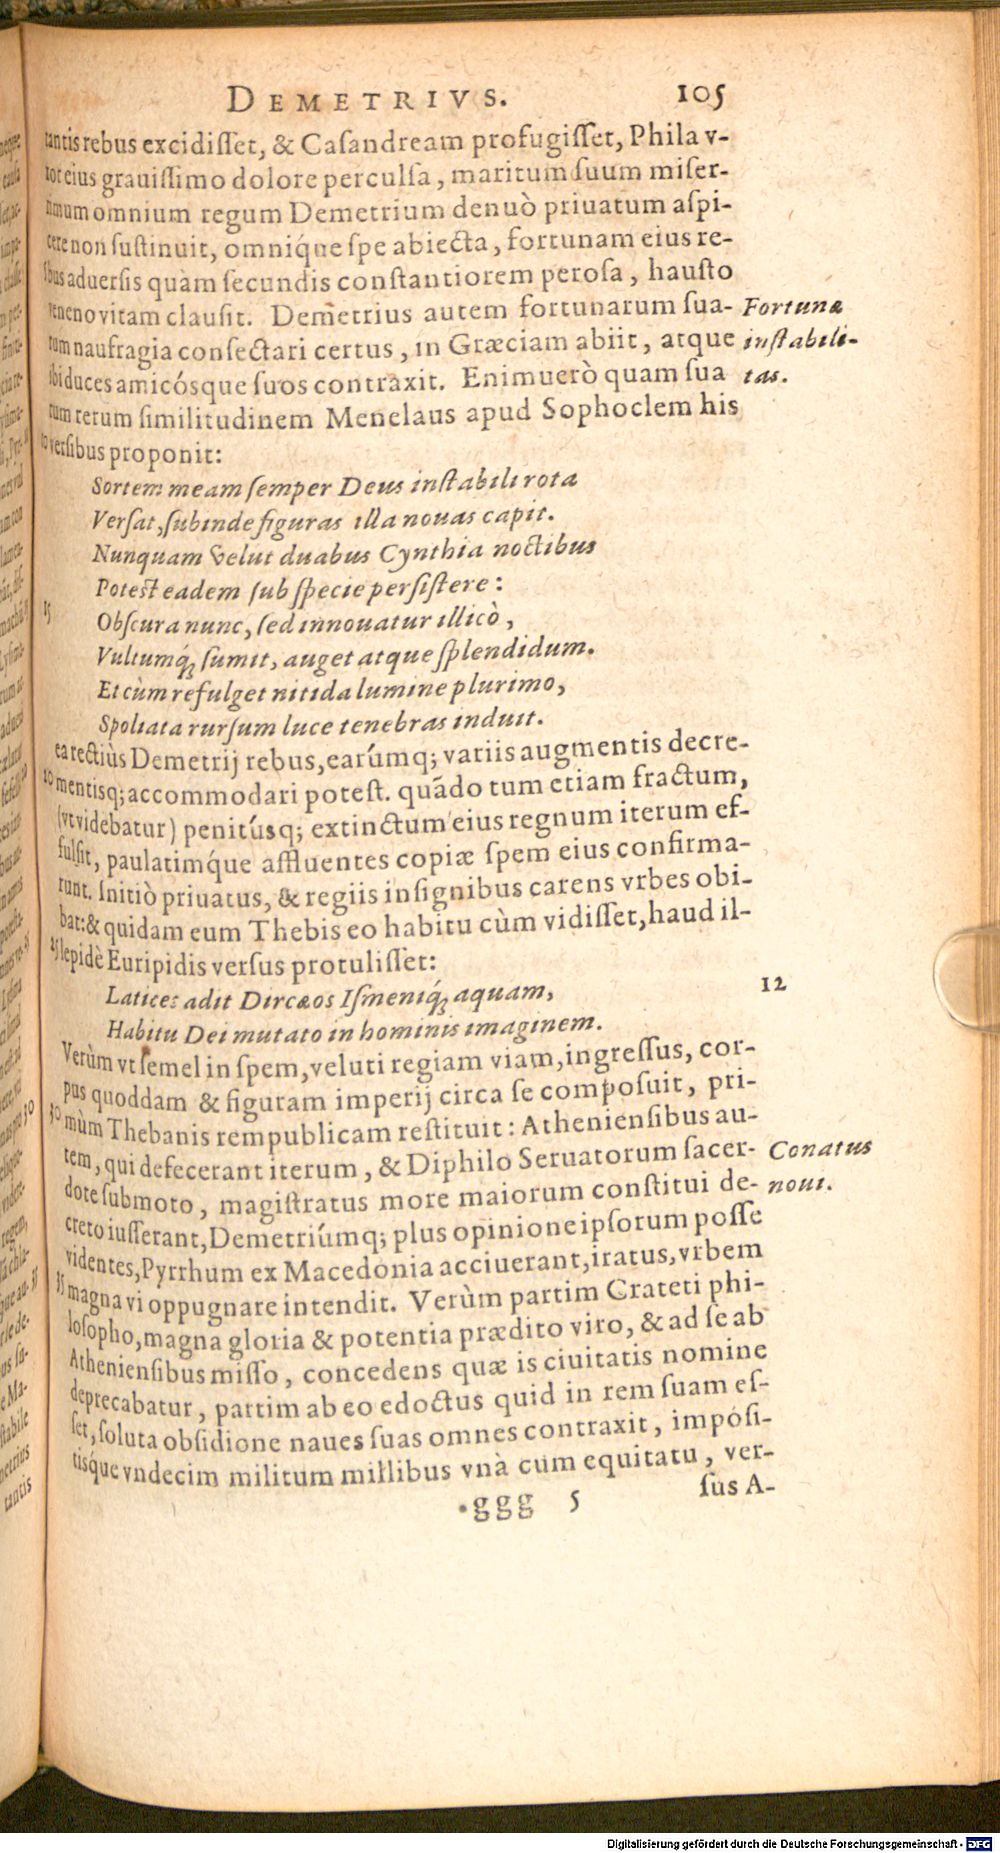 DEMETRIVS. 105
tantis rebus excidiſſet, & Caſandream profugiſſet, Phila v-
xor eius grauiſſimo dolore perculſa, maritum ſuum miſer-
rimum omnium regum Demetrium denuò priuatum aſpi-
cere non ſuſtinuit, omniq́ue ſpe abiecta, fortunam eius re-
bus aduerſis quàm ſecundis conſtantiorem peroſa, hauſto
veneno vitam clauſit. Demetrius autem fortunarum ſua- Fortunæ
rum naufragia conſectari certus, in Græciam abiit, atque inſtabili-
ibi duces amicósque ſuos contraxit. Enimuerò quam ſua tas.
rum rerum ſimilitudinem Menelaus apud Sophoclem his
10 verſibus proponit:
Sortem meam ſemper Deus inſtabili rota
Verſat, ſubinde figuras illa nouas capit.
Nunquam velut duabus Cynthia noctibus
Poteſt eadem ſub ſpecie perſiſtere:
15 Obſcura nunc, ſed innouatur illicò,
Vultumq́; ſumit, auget atque ſplendidum.
Et cùm refulget nitida lumine plurimo,
Spoliata rurſum luce tenebras induit.
ea rectiùs Demetrij rebus, earúmq; variis augmentis decre-
20 mentisq; accommodari poteſt. quãdo tum etiam fractum,
(vt videbatur) penitúsq; extinctum eius regnum iterum ef-
fulſit, paulatimq́ue affluentes copiæ ſpem eius confirma-
runt. Initiò priuatus, & regiis inſignibus carens vrbes obi-
bat: & quidam eum Thebis eo habitu cùm vidiſſet, haud il-
25 lepidè Euripidis verſus protuliſſet:
Latices adit Dircæos Iſmeniq́; aquam, 12
Habitu Dei mutato in hominis imaginem.
Verùm vt ſemel in ſpem, veluti regiam viam, ingreſſus, cor-
pus quoddam & figuram imperij circa ſe compoſuit, pri-
30 mùm Thebanis rempublicam reſtituit: Athenienſibus au-
tem, qui defecerant iterum, & Diphilo Seruatorum ſacer- Conatus
dote ſubmoto, magiſtratus more maiorum conſtitui de- noui.
creto iuſſerant, Demetriúmq; plus opinione ipſorum poſſe
videntes, Pyrrhum ex Macedonia acciuerant, iratus, vrbem
35 magna vi oppugnare intendit. Verùm partim Crateti phi-
loſopho, magna gloria & potentia prædito viro, & ad ſe ab
Athenienſibus miſſo, concedens quæ is ciuitatis nomine
deprecabatur, partim ab eo edoctus quid in rem ſuam eſ-
ſet, ſoluta obſidione naues ſuas omnes contraxit, impoſi-
tisque vndecim militum millibus vnà cum equitatu, ver-
*ggg 5 ſus A-
Digitalisierung gefördert durch die Deutsche Forschungsgemeinschaft - DFG